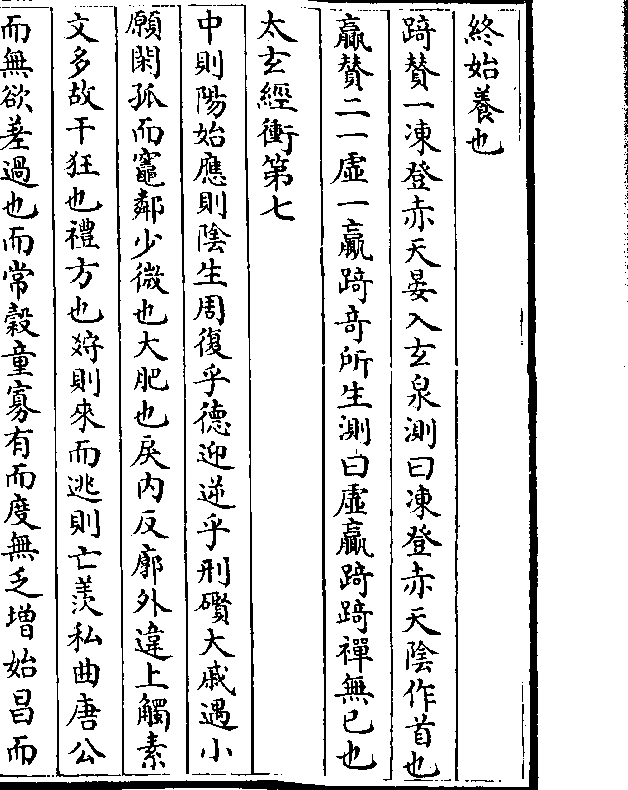 終始養也
踦贊一凍登赤天晏入玄泉測曰凍登赤天陰作首也
贏贊二一虛一贏踦竒所生測曰虛贏踦踦禪無已也
太玄經衝第七
中則陽始應則陰生周復乎德迎逆乎刑礥大戚遇小
願閑孤而竈鄰少微也大肥也戾内反廓外違上觸素
文多故干狂也禮方也𤞤則來而逃則亡羨私曲唐公
而無欲差過也而常榖童寡有而度無乏增始昌而